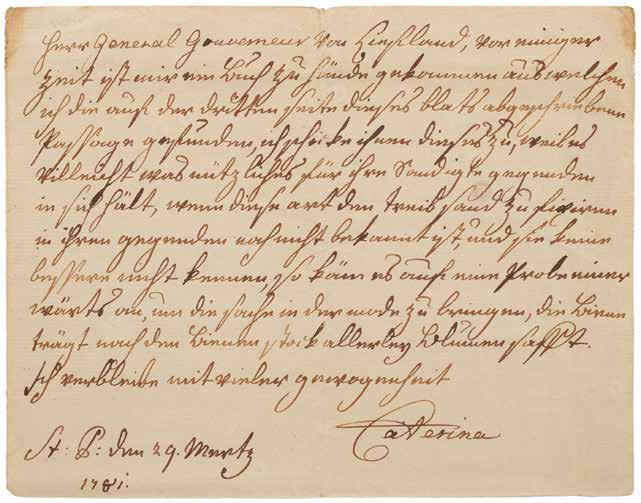 Herr General Gouverneur von Liefland, vor einiger
Zeit ist mir ein Buch zu hände gekommen aus welchen
ich die auf der dritten seite dieses blats abgeschriebene
Passage gefunden, ich schicke ihnen dieses zu, weil es
villeicht was nützliches für ihre Sandigte gegenden
in sich hält, wenn diese art den treib sand zu fixiren
in ihren gegenden noch nicht bekannt ist, und sie keine
bessere nicht kennen, so käm es auf eine Probe
wärts an, um die sache in der mode zu bringen, die Biene
trägt nach den bienen stock allerley blumen safft.
Ich verbleibe mit vieler gewogenheit
Caterina
St: P: den 29. Mertz
1781.